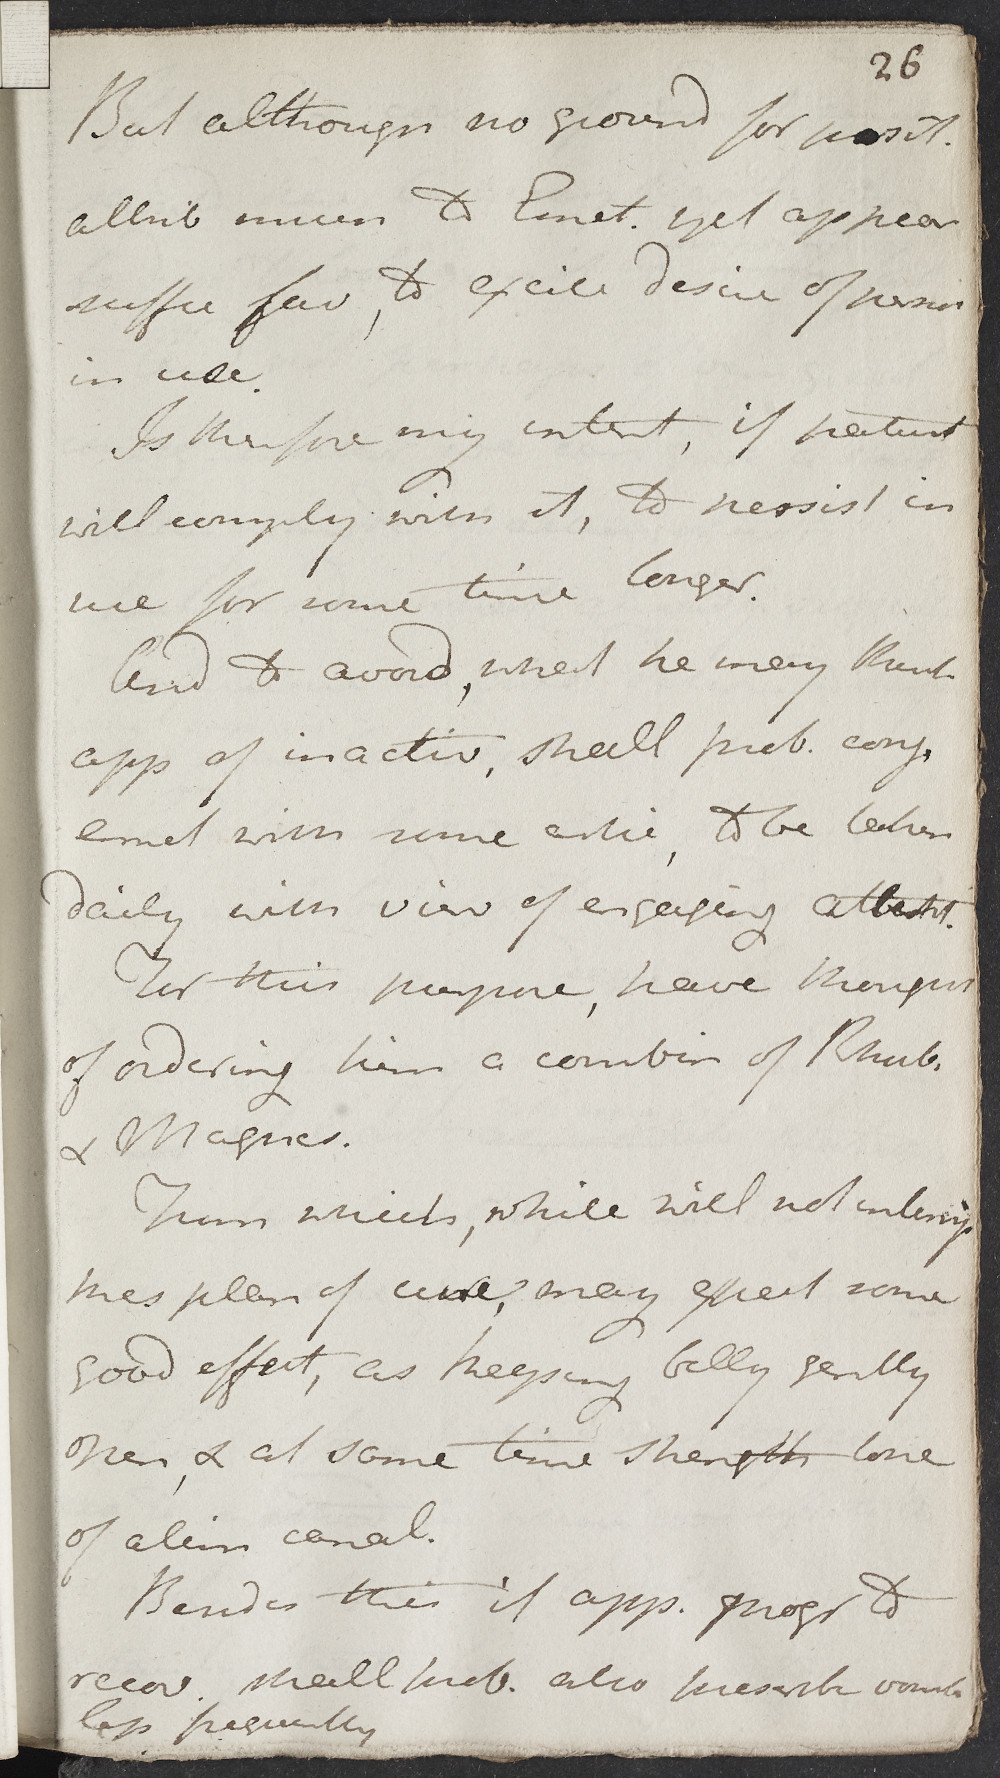 26
But although no ground for posit.
attrib much to Emet. yet appear
suffic fav, to excite desire of persis
in use.
Is therefore my intent, if patient
will comply with it, to persist in
use for some time longer.
And to avoid, what he may think
app of inactiv, shall prob. conj.
emet with some artic, to be taken
daily with view of engaging attent.
For this purpose, have thought
of ordering him a combin of Rhub.
& Magnes.
From which, while will not interrup
this plan of cure, may expect some
good effect, as keeping belly gently
open, & at same time strength tone
of alim canal.
Besides this if app. progr to
recov. shall prob. also prescribe vomit
less frequently